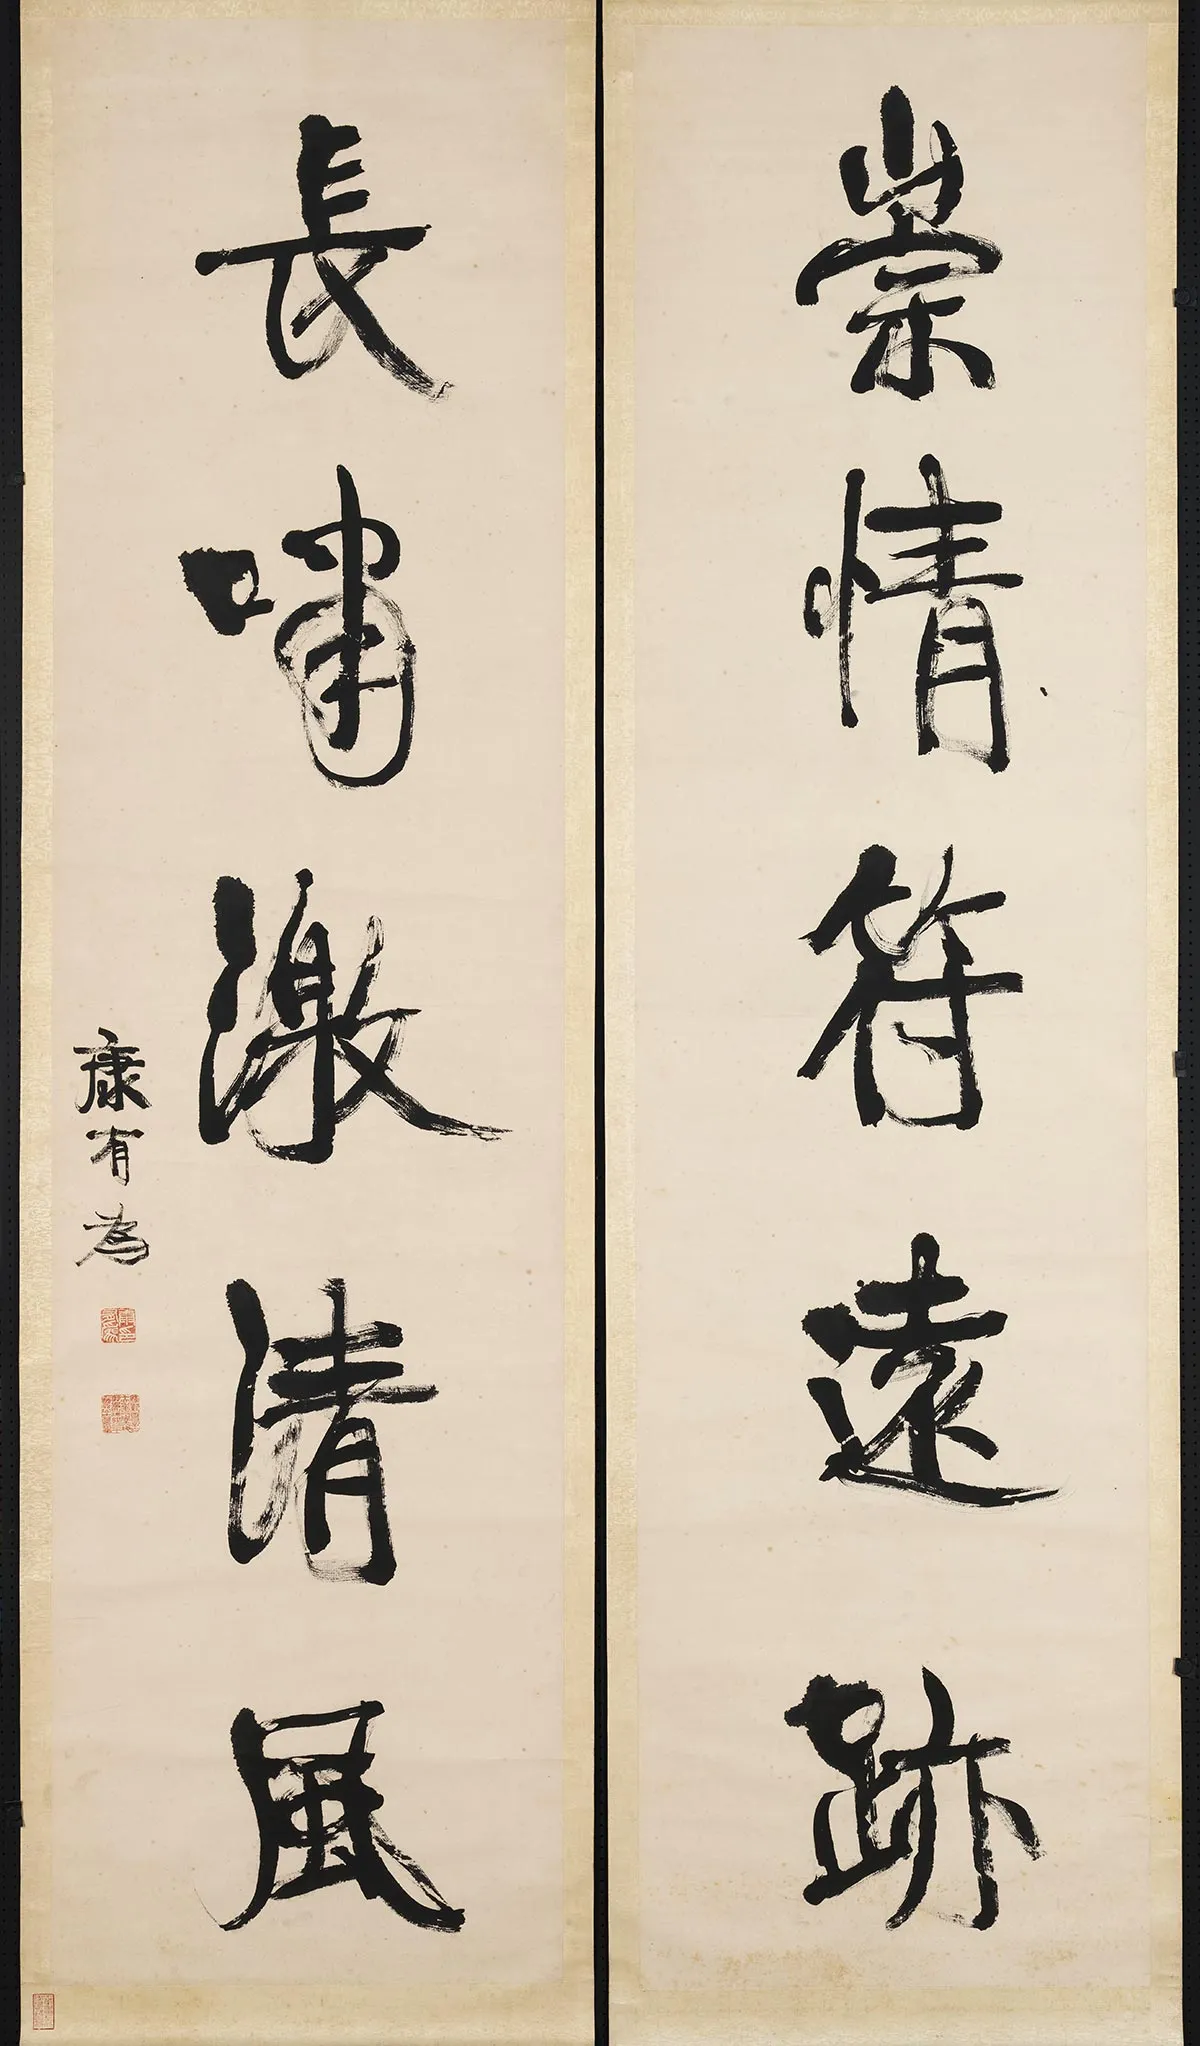 崇情符遠跡
長嘯激清風
康有為